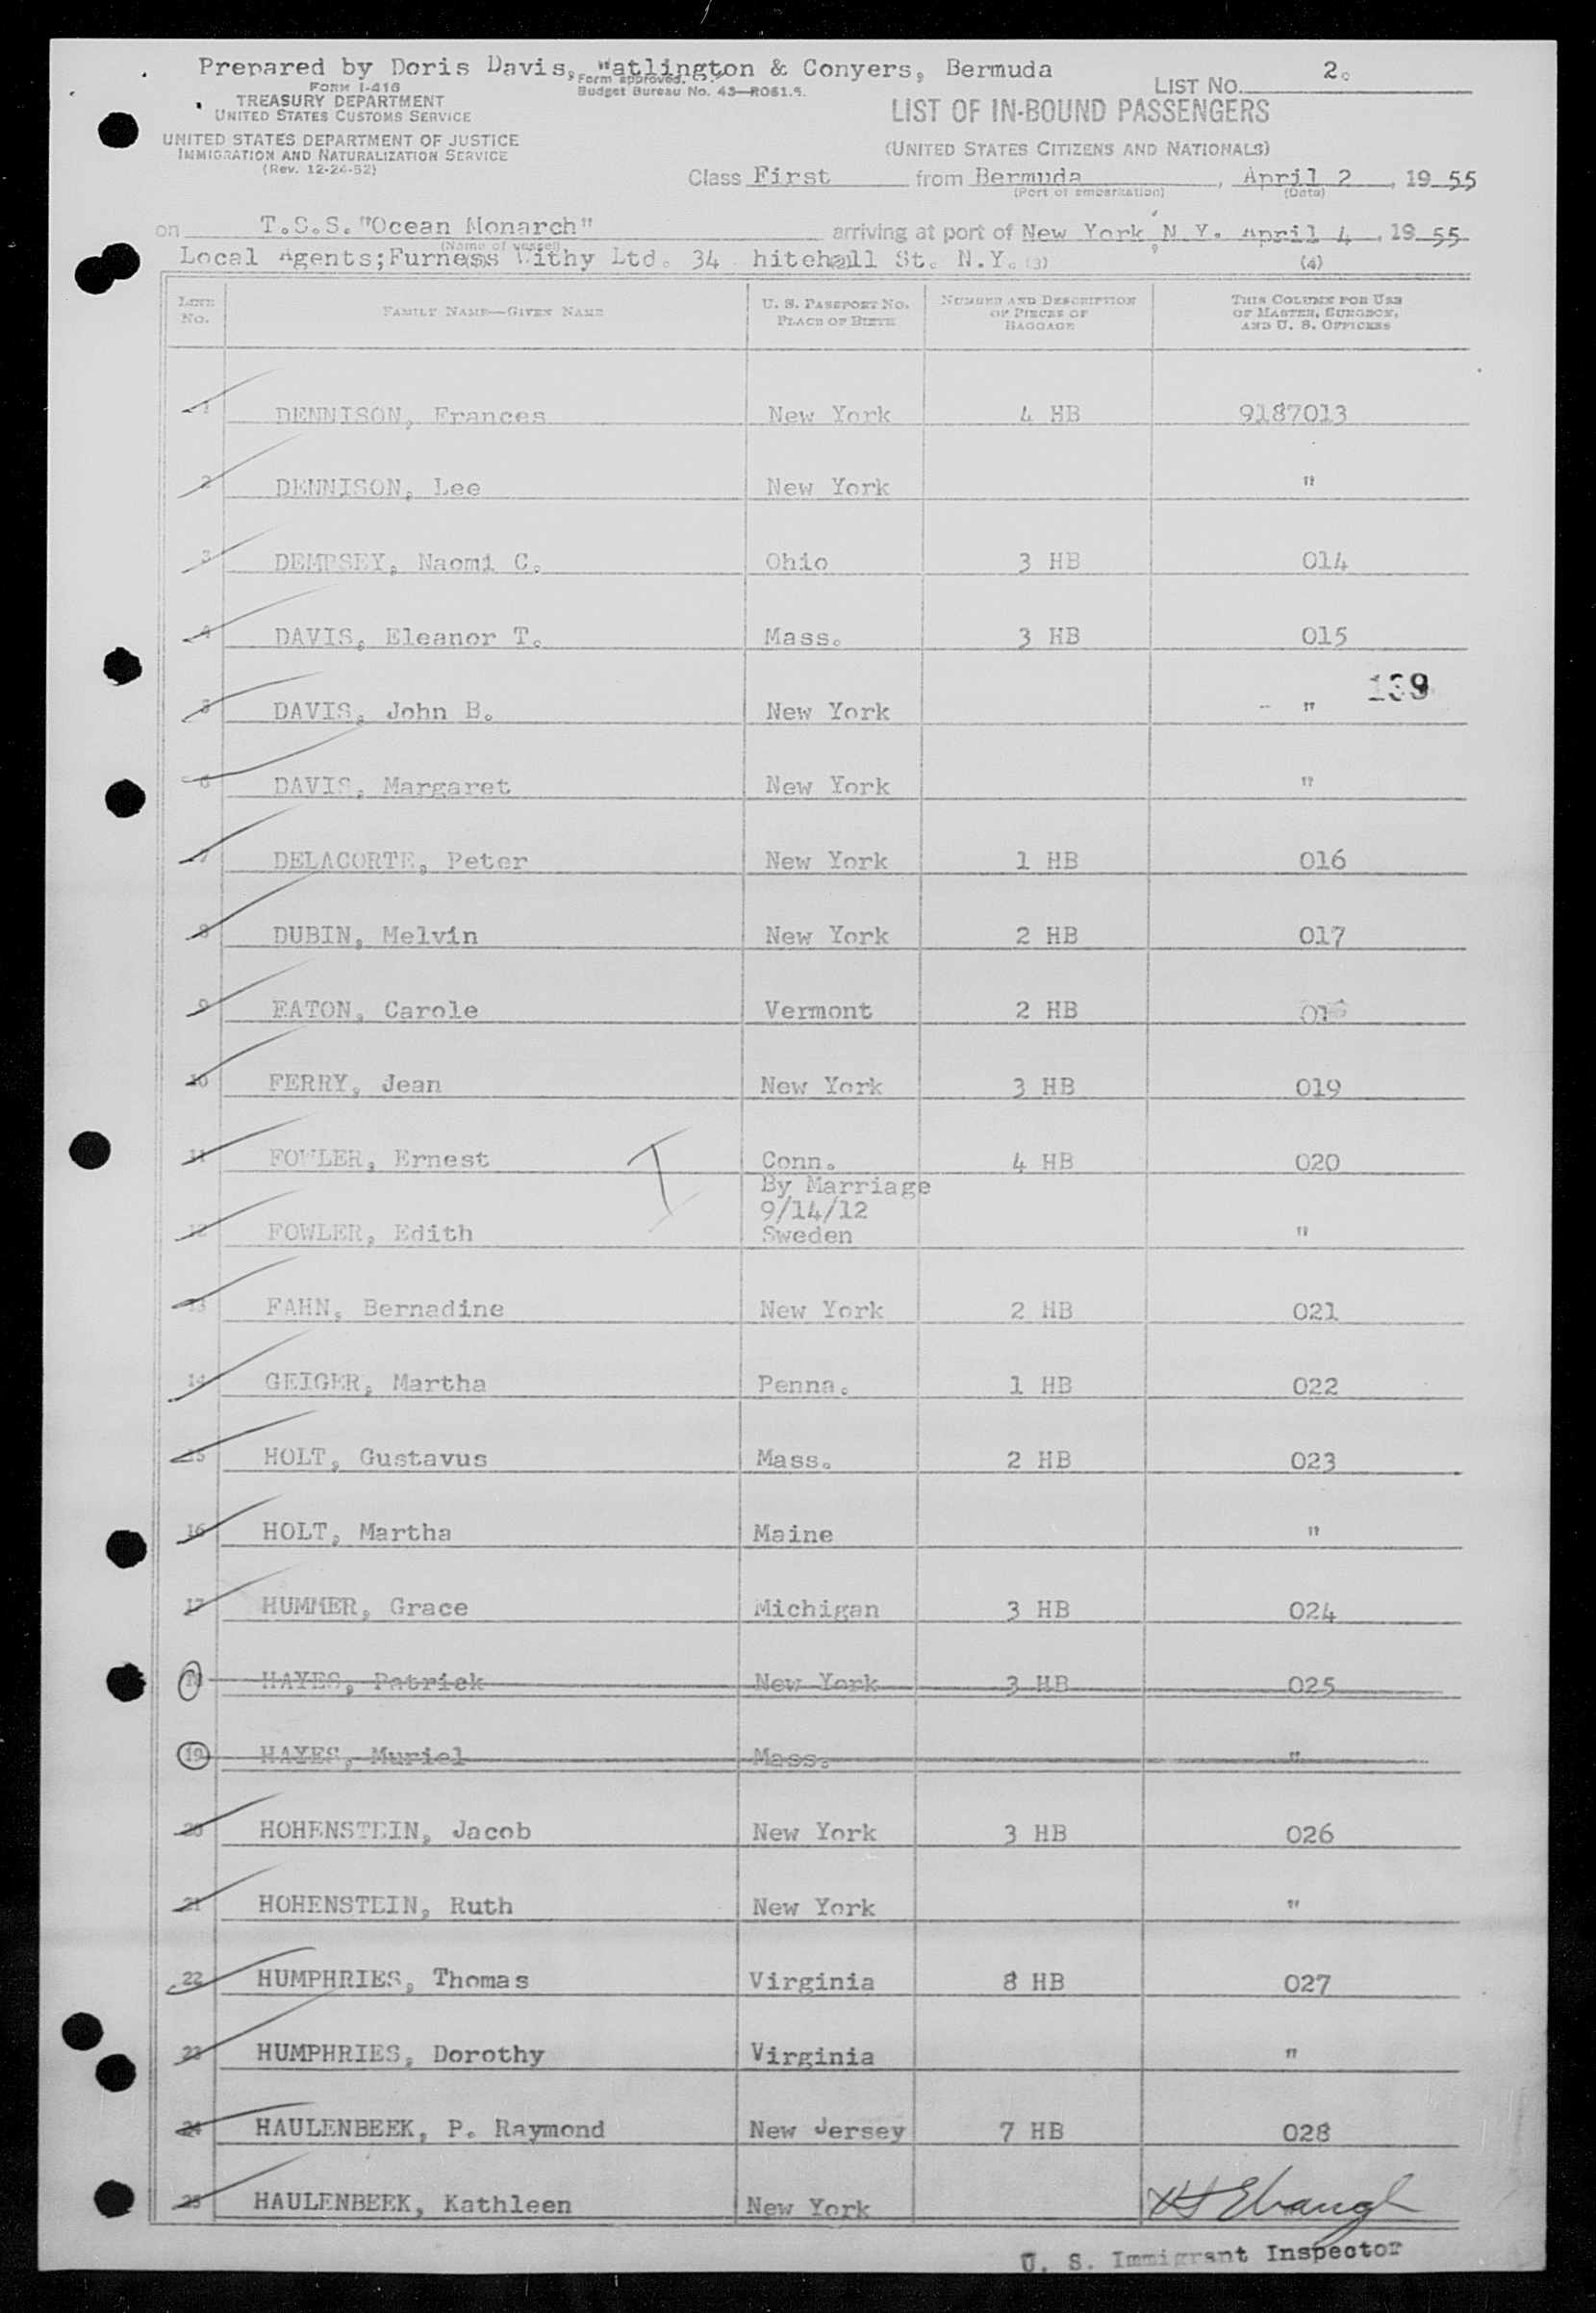 Prepared by Doris Davis, Watlington & Conyers, Bermuda
FORM I-418
TREASURY DEPARTMENT
UNITED STATES CUSTOMS SERVICE
UNITED STATES DEPARTMENT OF JUSTICE
IMMIGRATION AND NATURALIZATION SERVICE
(Rev. 12-24-52)
Form approved.
Budget Bureau No. 43—R061.5.
LIST NO. 2.
LIST OF IN-BOUND PASSENGERS
(UNITED STATES CITIZENS AND NATIONALS)
Class First from Bermuda, April 2, 1955
(Port of embarkation) (Date)
on T.S.S. "Ocean Monarch" arriving at port of New York, N.Y. April 4, 1955
(Name of vessel)
Local Agents; Furness Withy Ltd. 34 hitehall St. N.Y. (3) (4)
LINE NO. FAMILY NAME—GIVEN NAME U. S. PASSPORT NO. PLACE OF BIRTH NUMBER AND DESCRIPTION OF PIECES OF BAGGAGE THIS COLUMN FOR USE OF MASTER, SURGEON, AND U. S. OFFICERS
1 DENNISON, Frances New York 4 HB 9187013
2 DENNISON, Lee New York "
3 DEMPSEY, Naomi C. Ohio 3 HB 014
4 DAVIS, Eleanor T. Mass. 3 HB 015
139
5 DAVIS, John B. New York - "
6 DAVIS, Margaret New York "
7 DELACORTE, Peter New York 1 HB 016
8 DUBIN, Melvin New York 2 HB 017
9 EATON, Carole Vermont 2 HB
10 FERRY, Jean New York 3 HB 019
11 FOWLER, Ernest Conn. 4 HB 020
By Marriage
9/14/12
12 FOWLER, Edith Sweden "
13 FAHN, Bernadine New York 2 HB 021
14 GEIGER, Martha Penna. 1 HB 022
15 HOLT, Gustavus Mass. 2 HB 023
16 HOLT, Martha Maine "
17 HUMMER, Grace Michigan 3 HB 024
18 HAYES, Patrick New York 3 HB 025
19 HAYES, Muriel Mass. "
20 HOHENSTEIN, Jacob New York 3 HB 026
21 HOHENSTEIN, Ruth New York "
22 HUMPHRIES, Thomas Virginia 8 HB 027
23 HUMPHRIES, Dorothy Virginia "
24 HAULENBEEK, P. Raymond New Jersey 7 HB 028
25 HAULENBEEK, Kathleen New York
U. S. Immigrant Inspector